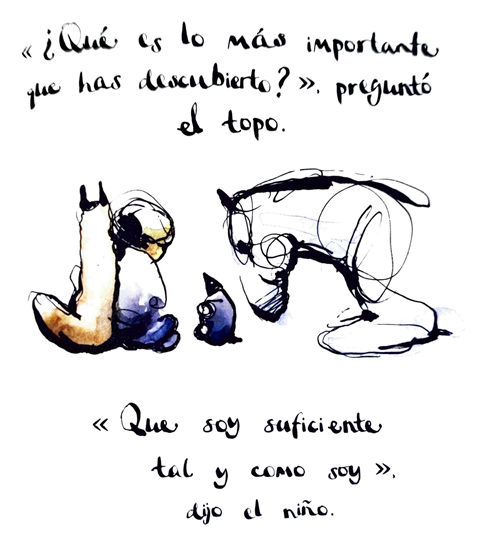 « ¿Qué es lo más importante
que has descubierto? ». preguntó
el topo.
« Que soy suficiente
tal y como soy ».
dijo el niño.